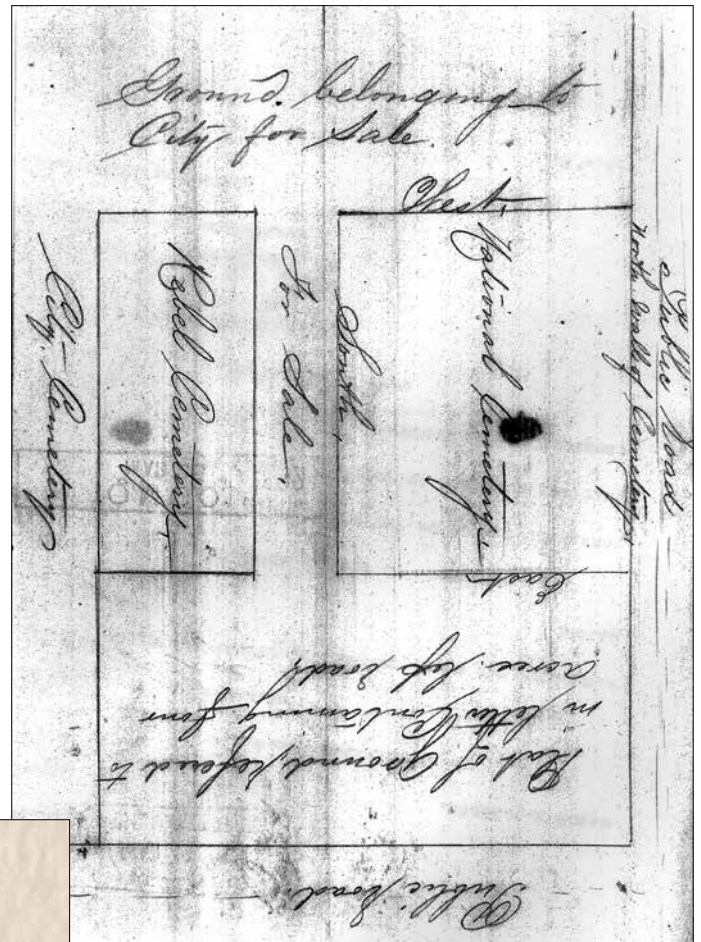 Ground belonging to
City for Sale.
West,
Public Road
North Wall of Cemetery,
National Cemetery,
South,
For Sale,
Rebel Cemetery,
City Cemetery
East
Plat of Ground refered to
in letter Containing four
acres less roads
Public Road.